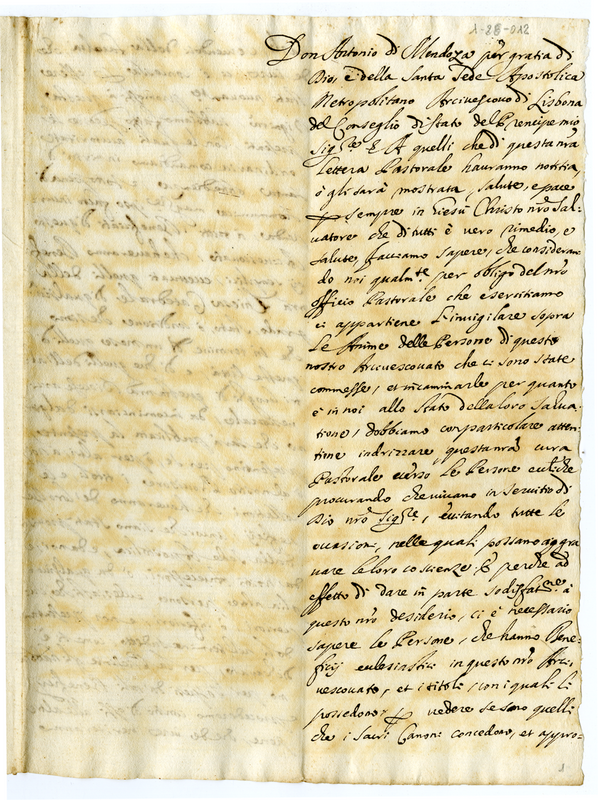 1-28-012
Don Antonio di Mendoza per gratia di
Dio, e della Santa Sede Apostolica
Metropolitano Arcivescovo di Lisbona
del Conseglio di Stato del Prencipe mio
Sig.re E A quelli che di questa nrã
Lettera Pastorale hauranno notitia,
ò gli sarà mostrata, salute, e pace
sempre in Giesù Christo nrõ Sal-
uatore che di tutti è uero rimedio, e
salute, facciamo sapere, che consideran-
do noi qualm.te per obligo del nrõ
officio Pastorale che esercitiamo
ci appartiene l'inuigilare sopra
le Anime delle Persone di questo
nostro Arciuescouato che ci sono state
commesse, et incaminarle per quanto
è in noi allo stato della loro salua-
tione, dobbiamo con particolare atten-
tione indrizzare questa nrã cura
Pastorale uerso le Persone eccl.che
procurando che uiuano in seruitio di
Dio nrõ Sig.re, euitando tutte le
occasioni, nelle quali possano aggra
uare le loro coscienze. E perche ad
effetto di dare in parte sodisfat.ne à
questo nrõ desiderio, ci è necessario
sapere le Persone, che hanno Bene-
ficij ecclesiastici in questo nrõ Arci-
uescouato, et i titoli, con i quali li
possedono, uedere se sono quelli
che i sacri Canoni concedono, et appro-